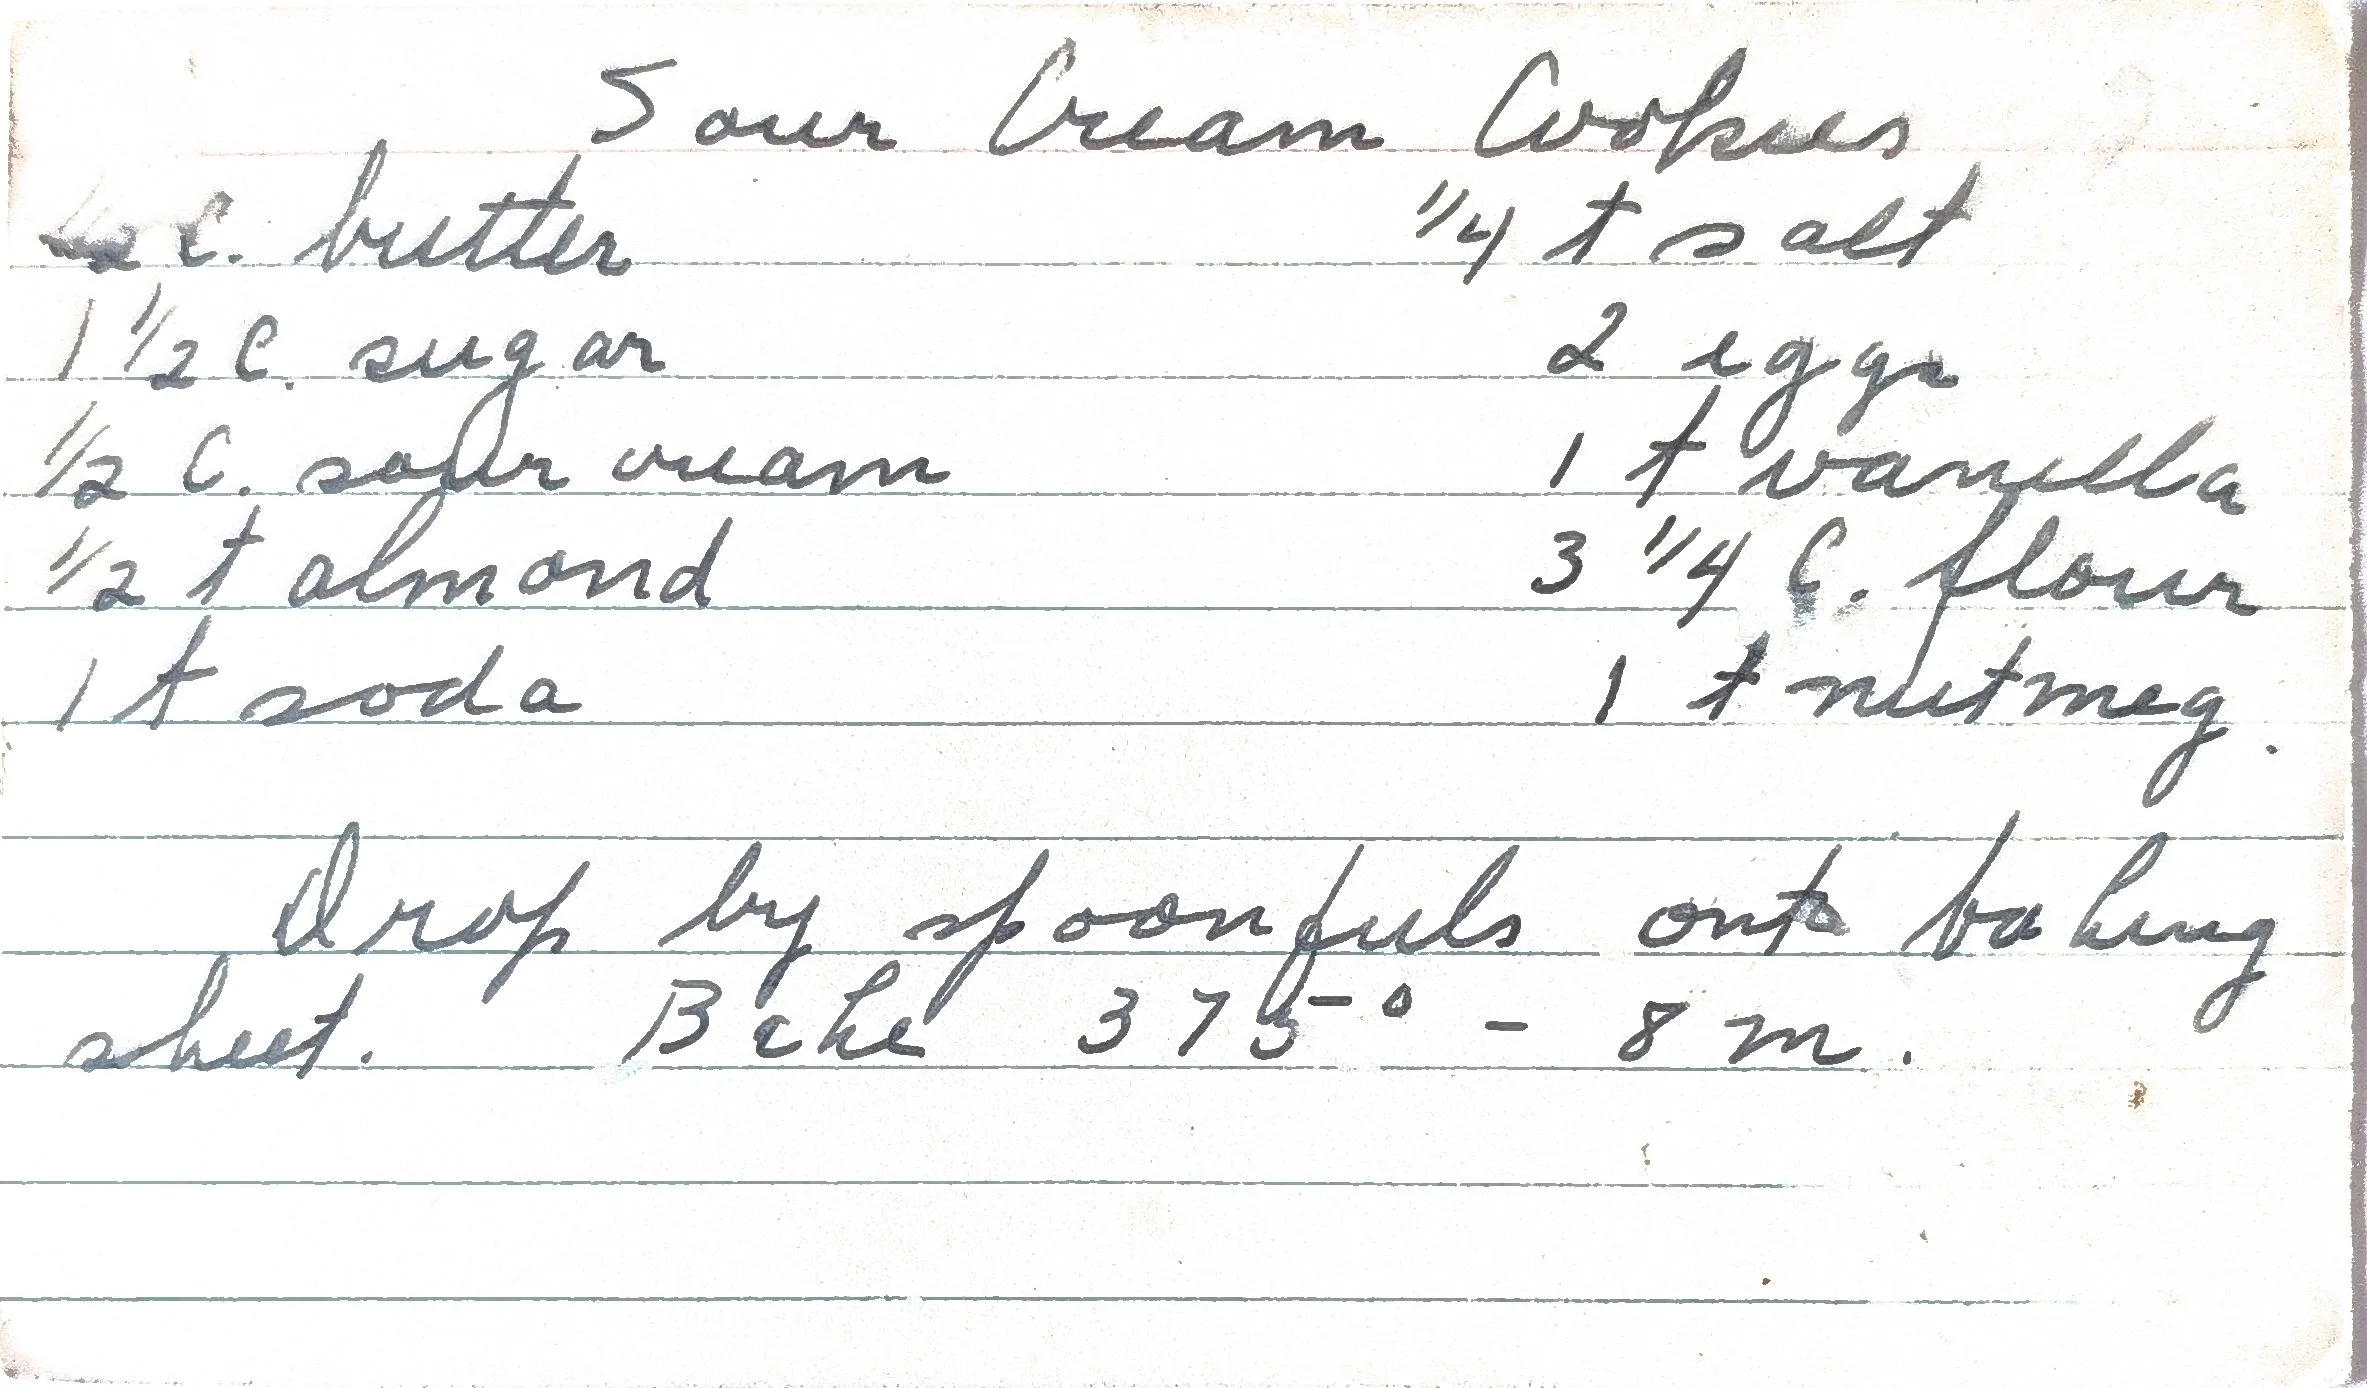 Sour Cream Cookies
C. butter 1/4 t salt
1 1/2 C. sugar 2 eggs
1/2 C. sour cream 1 t vanilla
1/2 t almond 3 1/4 C. flour
1 t soda 1 t nutmeg.
Drop by spoonfuls onto baking
sheet. Bake 375° - 8 m.